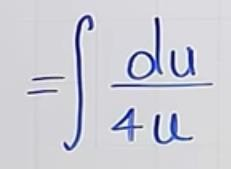 =∫ du/4u